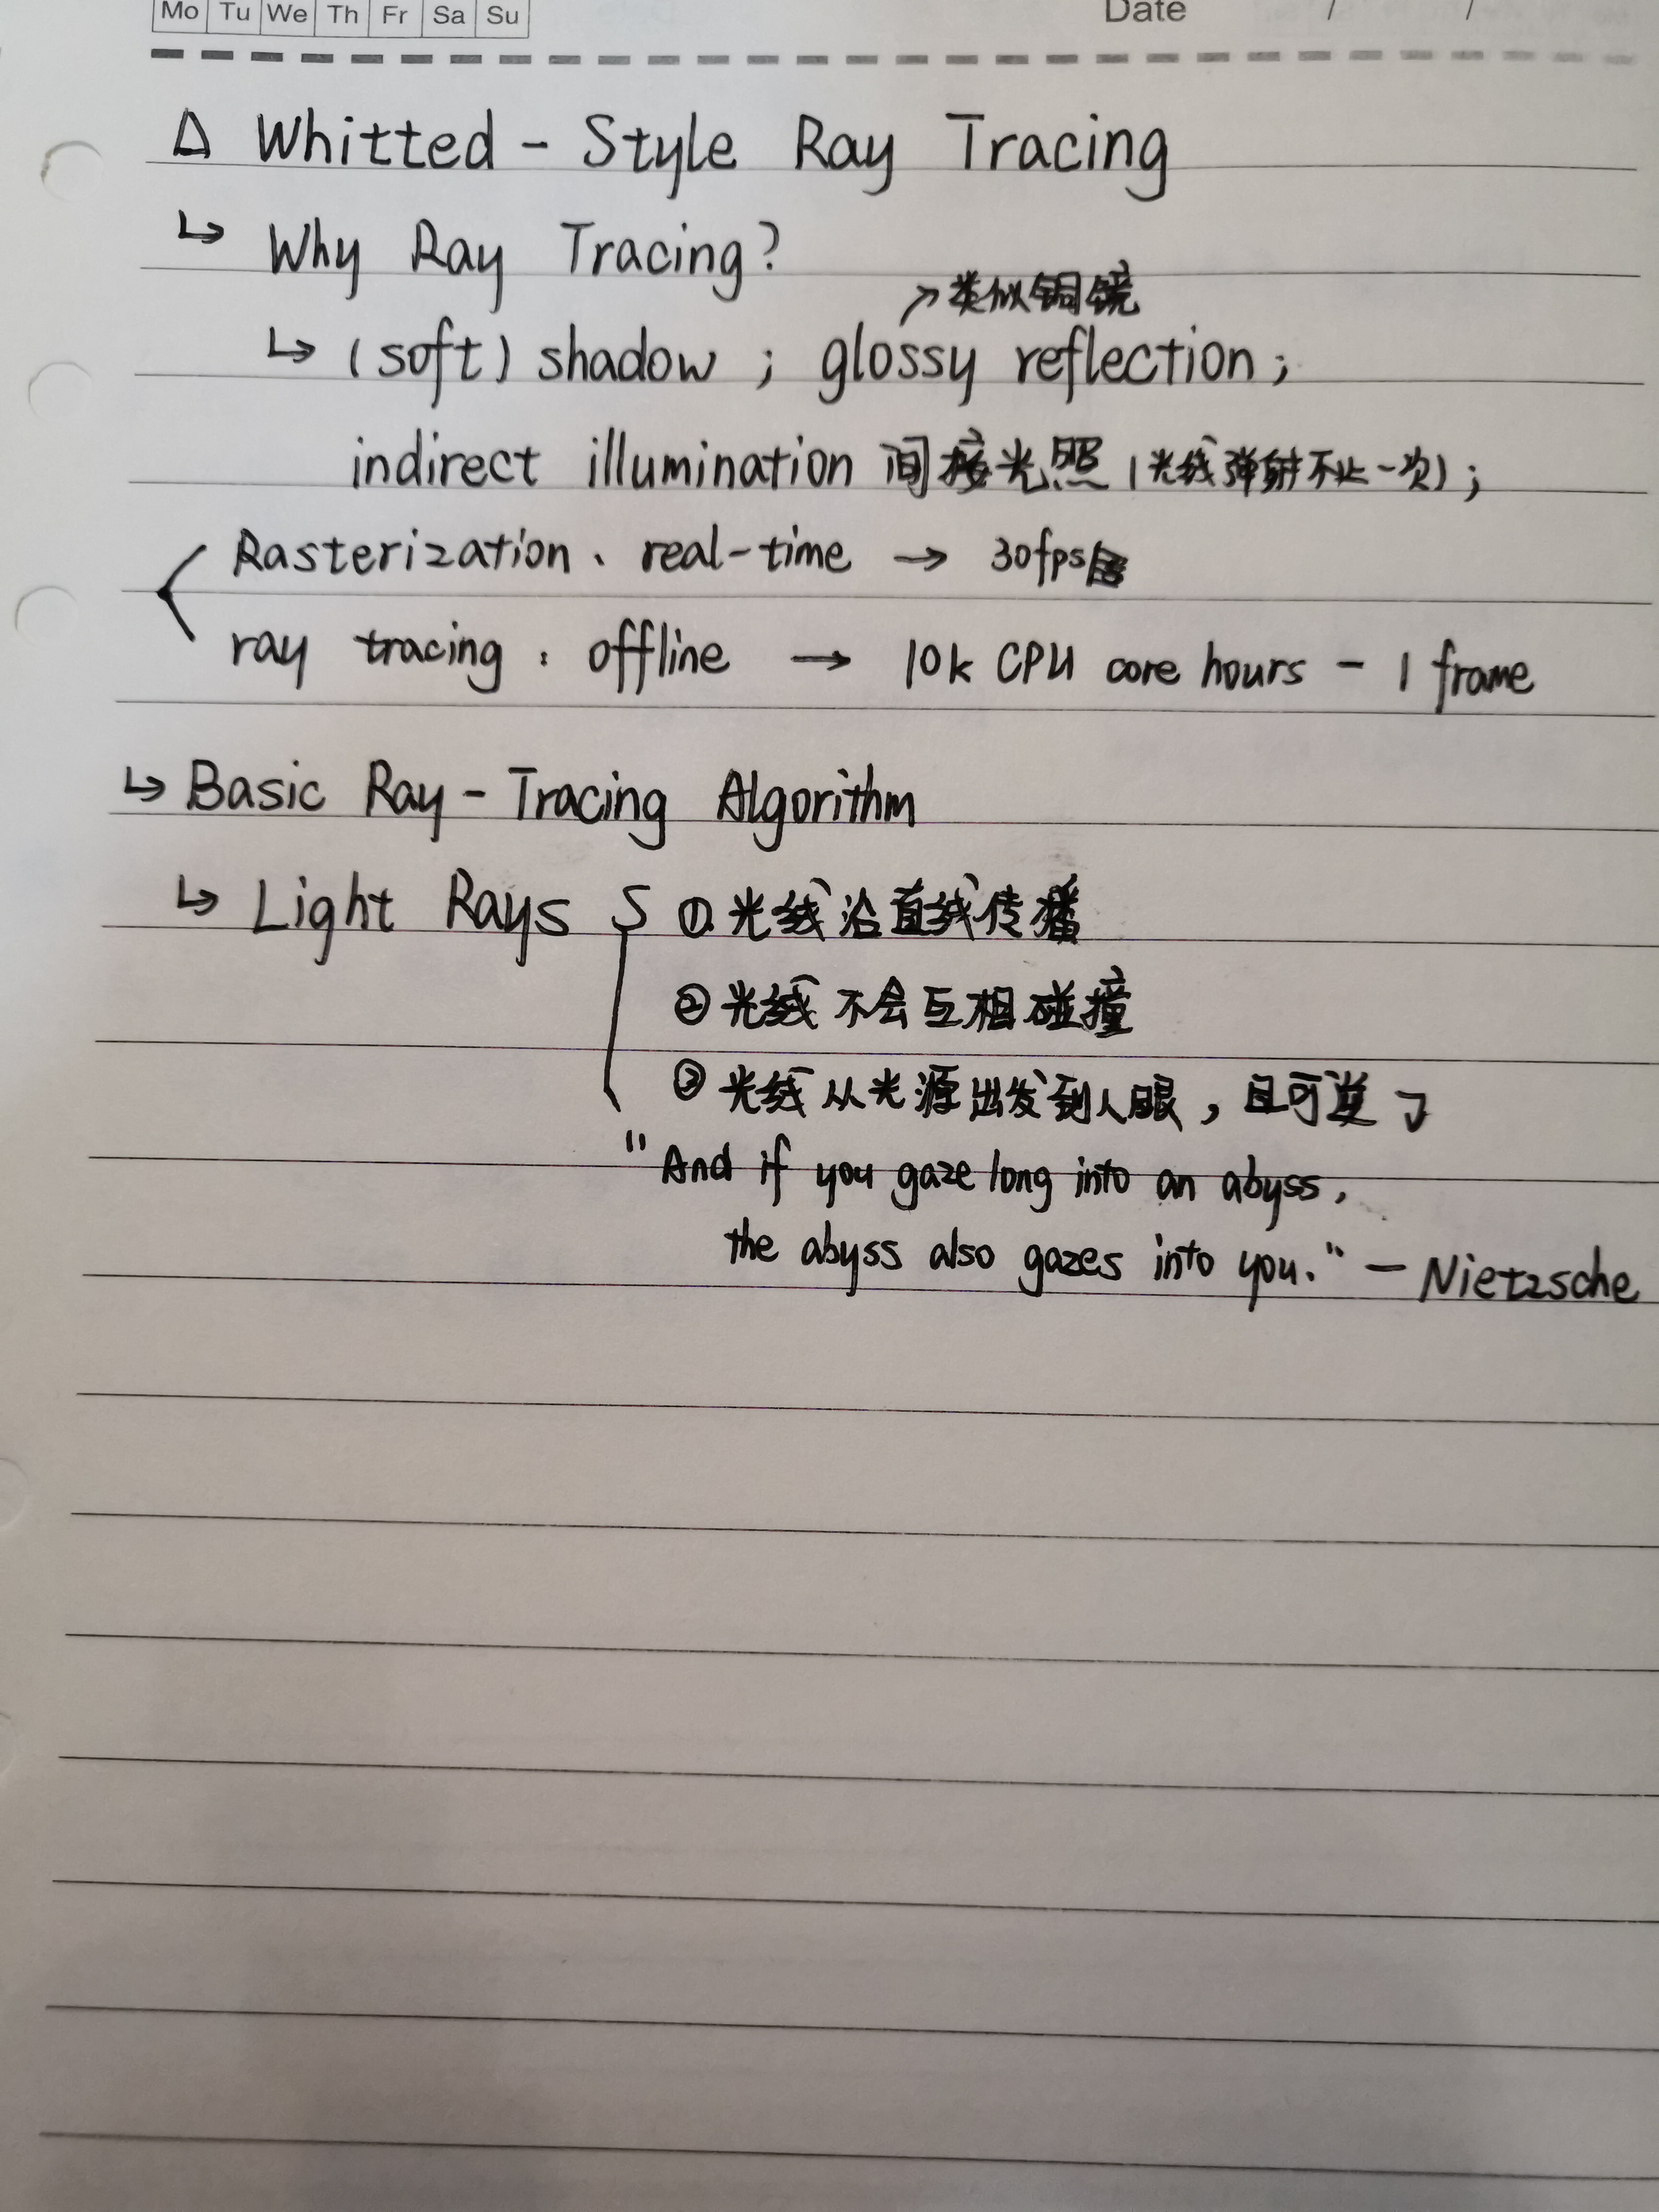 Mo Tu We Th Fr Sa Su Date / /
Δ Whitted - Style Ray Tracing
↳ Why Ray Tracing?
↗ 类似铜镜
↳ (soft) shadow ; glossy reflection ;
indirect illumination 间接光照 (光线弹射不止一次) ;
Rasterization 、 real-time → 30fps
ray tracing : offline → 10k CPU core hours - 1 frame
↳ Basic Ray - Tracing Algorithm
↳ Light Rays ① 光线沿直线传播
② 光线不会互相碰撞
③ 光线从光源出发到人眼，且可逆
"And if you gaze long into an abyss,
the abyss also gazes into you." — Nietzsche